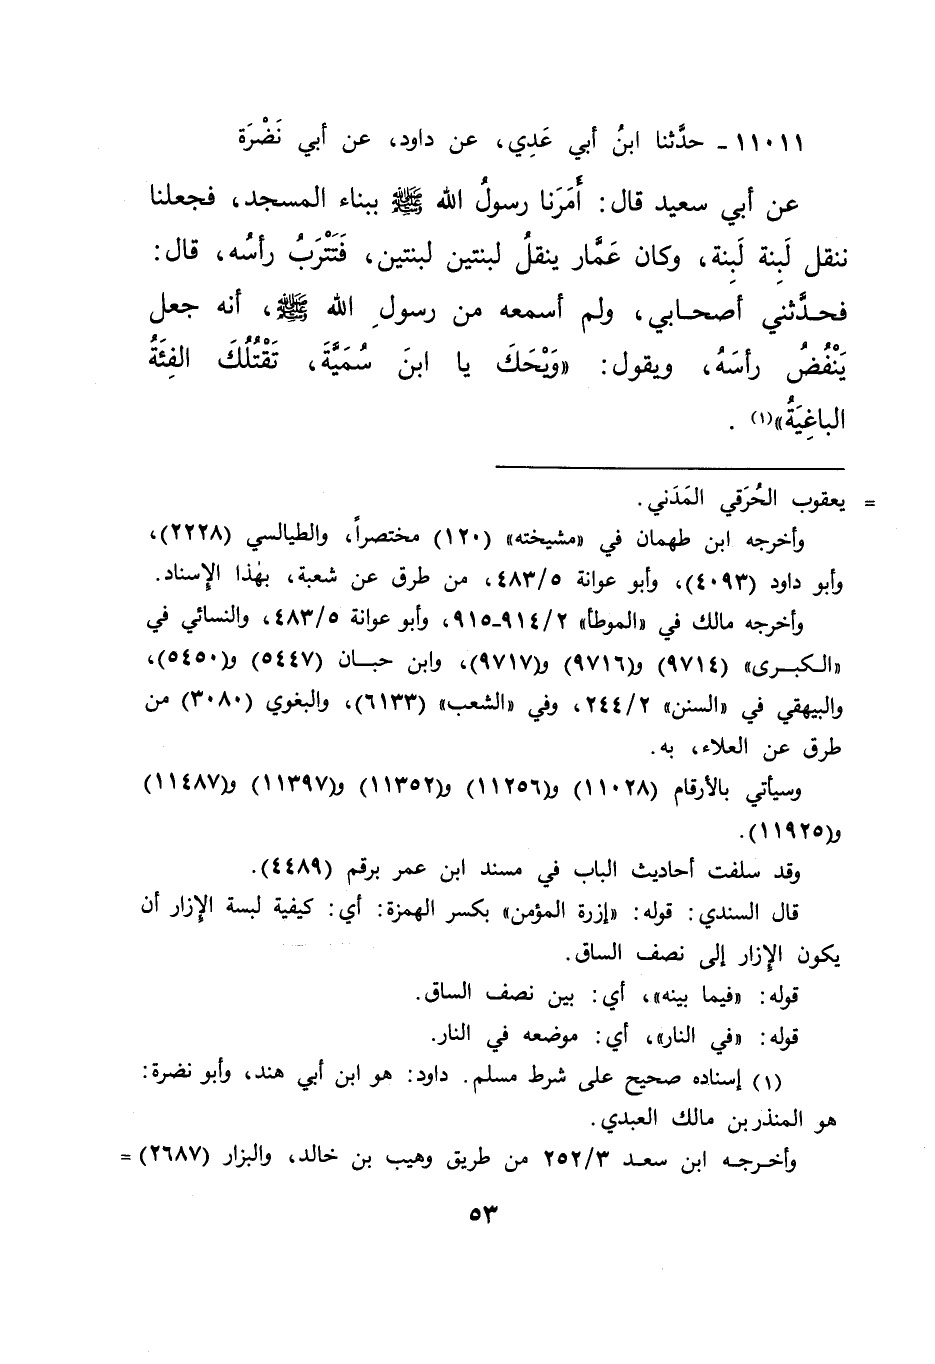 ١١٠١١ ـ حدَّثنا ابنُ أبي عَدِي، عن داود، عن أبي نَضْرَة
عن أبي سعيد قال: أَمَرَنا رسولُ الله ﷺ ببناء المسجد، فجعلنا
ننقل لَبِنة لَبِنة، وكان عَمَّار ينقلُ لبنتين لبنتين، فَتَتْرَبُ رأسُه، قال:
فحدَّثني أصحابي، ولم أسمعه من رسولِ الله ﷺ، أنه جعل
يَنْفُضُ رأسَهُ، ويقول: «وَيْحَكَ يا ابنَ سُمَيَّةَ، تَقْتُلُكَ الفِئَةُ
الباغِيَةُ»(١) .
= يعقوب الحُرَقي المَدَني.
وأخرجه ابن طهمان في «مشيخته» (١٢٠) مختصراً، والطيالسي (٢٢٢٨)،
وأبو داود (٤٠٩٣)، وأبو عوانة ٤٨٣/٥، من طرق عن شعبة، بهٰذا الإسناد.
وأخرجه مالك في «الموطأ» ٩١٤/٢ـ٩١٥، وأبو عوانة ٤٨٣/٥، والنسائي في
«الكبرى» (٩٧١٤) و(٩٧١٦) و(٩٧١٧)، وابن حبان (٥٤٤٧) و(٥٤٥٠)،
والبيهقي في «السنن» ٢٤٤/٢، وفي «الشعب» (٦١٣٣)، والبغوي (٣٠٨٠) من
طرق عن العلاء، به.
وسيأتي بالأرقام (١١٠٢٨) و(١١٢٥٦) و(١١٣٥٢) و(١١٣٩٧) و(١١٤٨٧)
و(١١٩٢٥).
وقد سلفت أحاديث الباب في مسند ابن عمر برقم (٤٤٨٩).
قال السندي: قوله: «إزرة المؤمن» بكسر الهمزة: أي: كيفية لبسة الإزار أن
يكون الإزار إلى نصف الساق.
قوله: «فيما بينه»، أي: بين نصف الساق.
قوله: «في النار»، أي: موضعه في النار.
(١) إسناده صحيح على شرط مسلم. داود: هو ابن أبي هند، وأبو نضرة:
هو المنذر بن مالك العبدي.
وأخرجه ابن سعد ٢٥٢/٣ من طريق وهيب بن خالد، والبزار (٢٦٨٧) =
٥٣